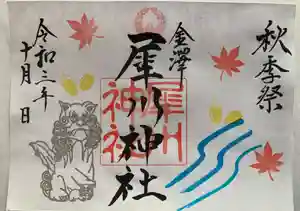 秋季祭
金澤
犀川神社
犀川
神社
令和三年
十月 日